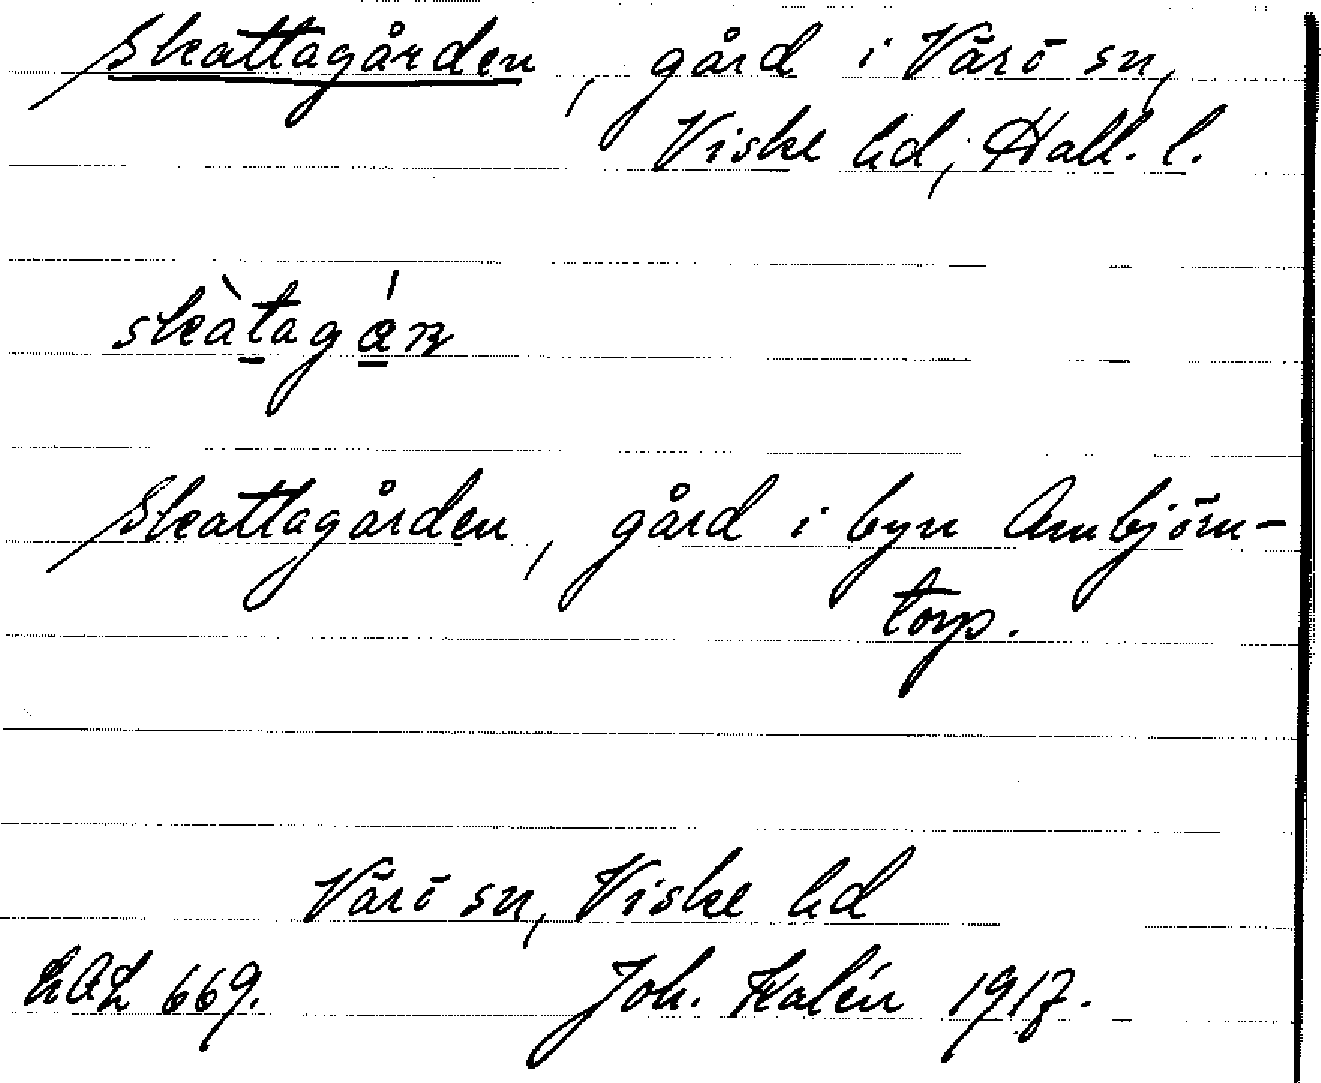 Skattagården, gård i Värö sn,
Viske hd, Hall. l.
skàtagán
Skattagården, gård i byn Ambjörn-
torp.
Värö sn, Viske hd
LAL 669. Joh. Kalén 1917.